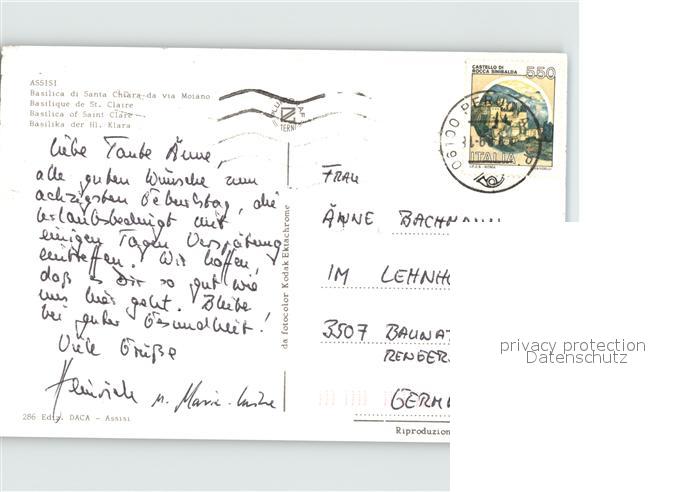 ASSISI
Basilica di Santa Chiara da via Moiano
Basilique de St. Claire
Basilica of Saint Clare
Basilika der Hl. Klara
Liebe Tante Änne,
alle guten Wünsche zum
achzigsten Geburtstag, die
urlaubsbedingt mit
einigen Tagen Verspätung
eintreffen. Wir hoffen,
daß es Dir so gut wie
uns hier geht. Bleibe
bei guter Gesundheit!
Viele Grüße
Heinrich u. Marie-Luise
286 Ediz. DACA - Assisi
da fotocolor Kodak Ektachrome
CASTELLO DI
ROCCA SINIBALDA
550
ITALIA
06100 PERUGIA
TERNI
FRAU
ÄNNE BACHMANN
IM LEHNHO
3507 BAUNAT
RENGER
GERMA
Riproduzion
privacy protection
Datenschutz